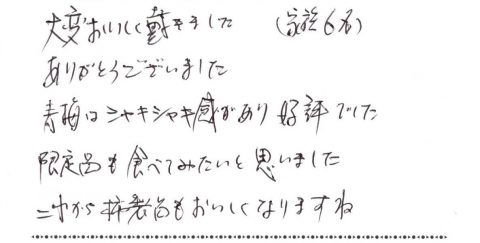 大変おいしく戴きました (家族6名)
ありがとうございました
青梅はシャキシャキ感があり好評でした
限定品も食べてみたいと思いました
これから柿製品もおいしくなりますね